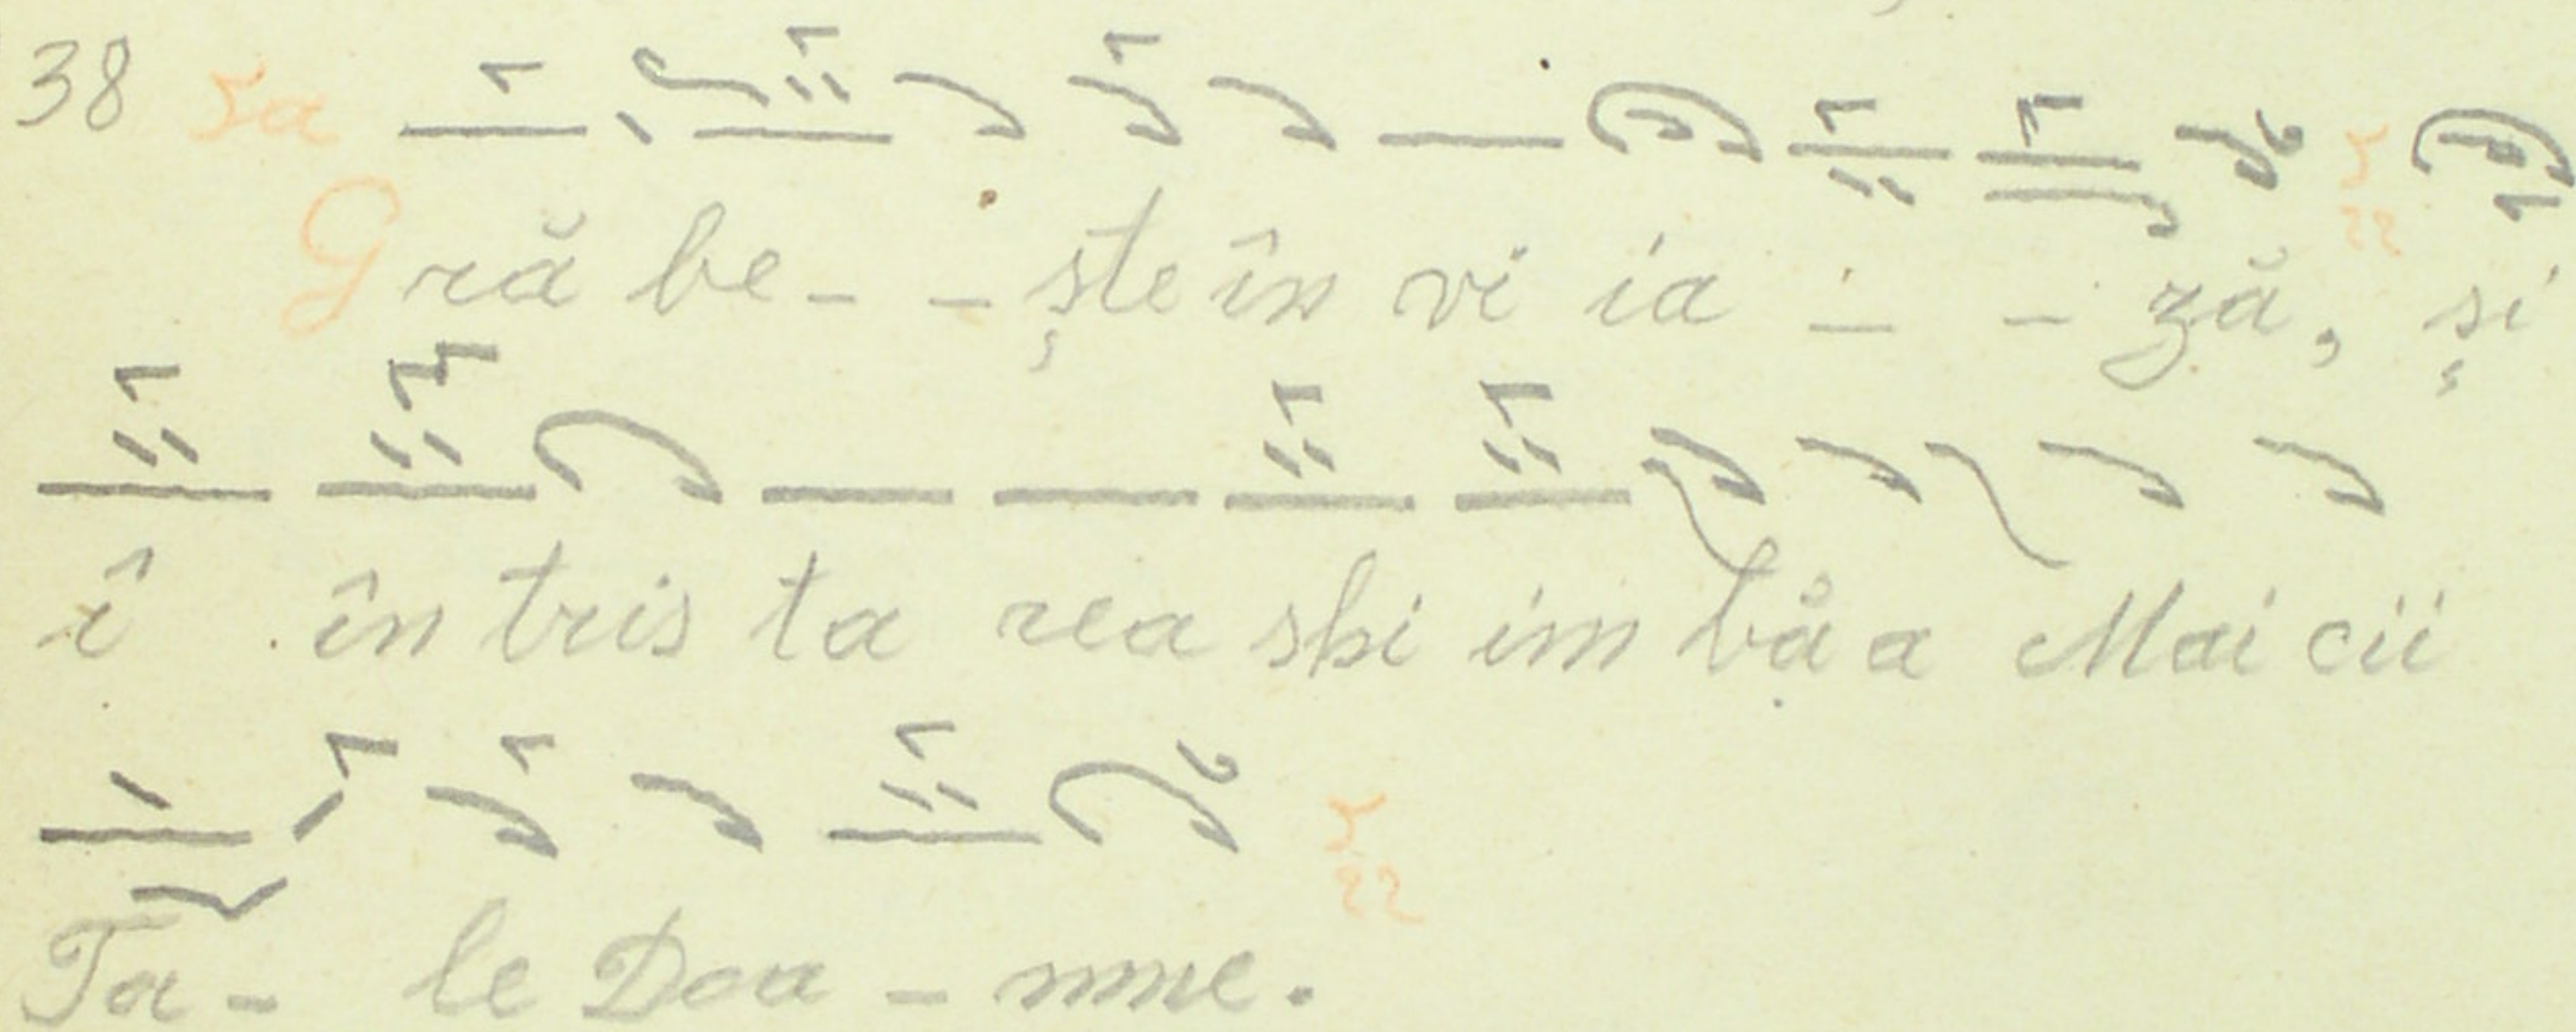 38
Gră be - - ște în vi ia - - ză, și
î în tris ta rea shi im bă a Maicii
Ta - le Doa - mne.